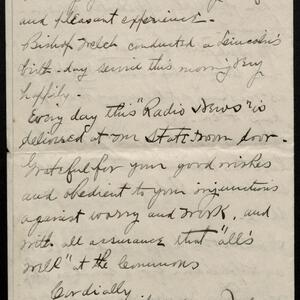 and pleasant experience.
Bishop Welch conducted a Lincoln's
birth-day service this morning very
happily.
Every day this "Radio News" is
delivered at our State room door.
Grateful for your good wishes
and obedient to your injunctions
against worry and work, and
with all assurance that "all's
well" at the Commons
Cordially